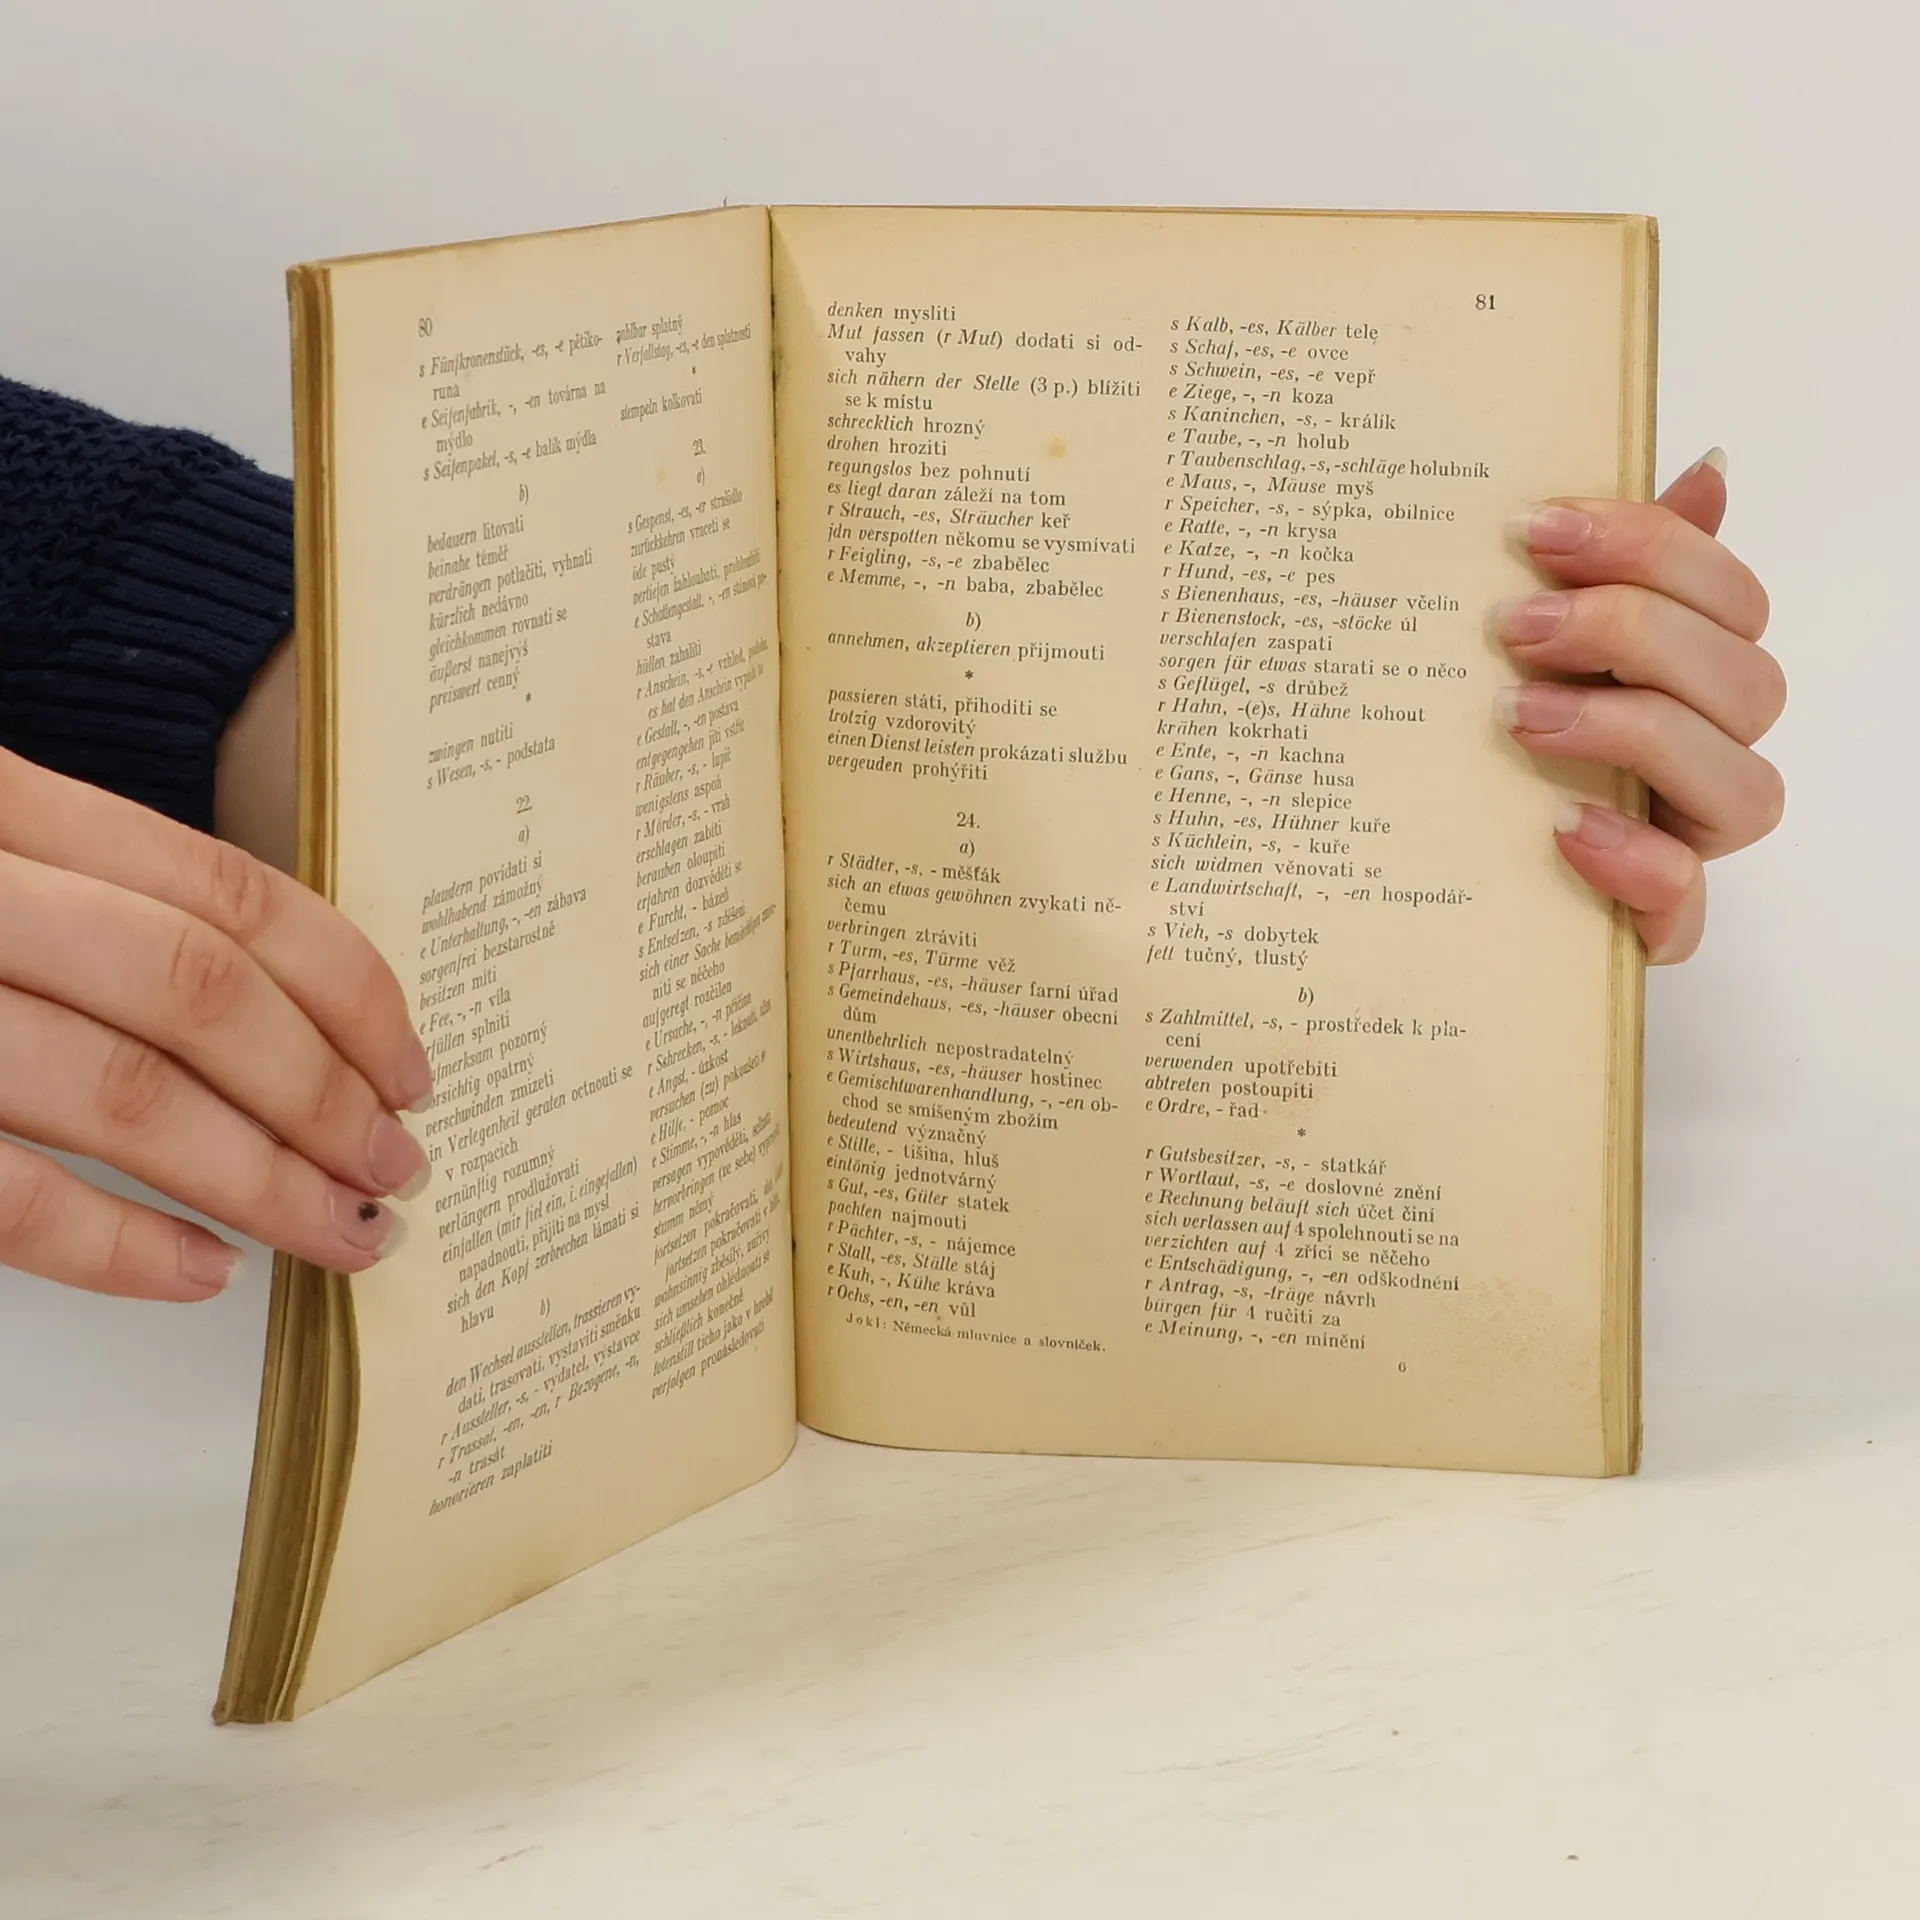 80
s Fünfkronenstück, -es, -e pětiko-
runa
e Seifenfabrik, -, -en továrna na
mýdlo
s Seifenpaket, -s, -e balík mýdla
b)
bedauern litovati
beinahe téměř
verdrängen potlačiti, vyhnati
kürzlich nedávno
gleichkommen rovnati se
äußerst nanejvýš
preiswert cenný
*
zwingen nutiti
s Wesen, -s, - podstata
22.
a)
plaudern povídati si
wohlhabend zámožný
e Unterhaltung, -, -en zábava
sorgenfrei bezstarostně
besitzen míti
e Fee, -, -n víla
rfüllen splniti
fmerksam pozorný
orsichtig opatrný
verschwinden zmizeti
in Verlegenheit geraten octnouti se
v rozpacích
vernünftig rozumný
verlängern prodlužovati
einfallen (mir fiel ein, i. eingefallen)
napadnouti, přijíti na mysl
sich den Kopf zerbrechen lámati si
hlavu
b)
den Wechsel ausstellen, trassieren vy-
dati, trasovati, vystaviti směnku
r Aussteller, -s, - vydatel, výstavce
r Trassat, -en, -en, r Bezogene, -n,
-n trasát
honorieren zaplatiti
zahlbar splatný
r Verfallstag, -es, -e den splatnosti
*
stempeln kolkovati
23.
a)
s Gespenst, -es, -er strašidlo
zurückkehren vraceti se
öde pustý
vertiefen zahloubati, prohloubiti
e Schattengestalt, -, -en stínová po-
stava
hüllen zahaliti
r Anschein, -s, -e vzhled,
es hat den Anschein vypadá to
e Gestalt, -, -en postava
entgegengehen jíti vstříc
r Räuber, -s, - lupič
wenigstens aspoň
r Mörder, -s, - vrah
erschlagen zabíti
berauben oloupiti
erfahren dozvěděti se
e Furcht, - bázeň
s Entsetzen, -s zděšení
sich einer Sache bemächtigen zmoc-
niti se něčeho
aufgeregt rozčilen
e Ursache, -, -n příčina
r Schrecken, -s, - leknutí,
e Angst, - úzkost
versuchen (zu) pokoušeti se
e Hilfe, - pomoc
e Stimme, -, -n hlas
versagen vypověděti,
hervorbringen (ze sebe)
stumm němý
fortsetzen pokračovati,
fortsetzen pokračovati v
wahnsinnig zběsilý, zuřivý
sich umsehen ohlédnouti se
schließlich konečně
totenstill ticho jako v hrobě
verfolgen pronásledovati
81
denken mysliti
Mut fassen (r Mut) dodati si od-
vahy
sich nähern der Stelle (3 p.) blížiti
se k místu
schrecklich hrozný
drohen hroziti
regungslos bez pohnutí
es liegt daran záleží na tom
r Strauch, -es, Sträucher keř
jdn verspotten někomu se vysmívati
r Feigling, -s, -e zbabělec
e Memme, -, -n baba, zbabělec
b)
annehmen, akzeptieren přijmouti
*
passieren státi, přihoditi se
trotzig vzdorovitý
einen Dienst leisten prokázati službu
vergeuden prohýřiti
24.
a)
r Städter, -s, - měšťák
sich an etwas gewöhnen zvykati ně-
čemu
verbringen ztráviti
r Turm, -es, Türme věž
s Pfarrhaus, -es, -häuser farní úřad
s Gemeindehaus, -es, -häuser obecní
dům
unentbehrlich nepostradatelný
s Wirtshaus, -es, -häuser hostinec
e Gemischtwarenhandlung, -, -en ob-
chod se smíšeným zbožím
bedeutend význačný
e Stille, - tišina, hluš
eintönig jednotvárný
s Gut, -es, Güter statek
pachten najmouti
r Pächter, -s, - nájemce
r Stall, -es, Ställe stáj
e Kuh, -, Kühe kráva
r Ochs, -en, -en vůl
Jokl: Německá mluvnice a slovníček.
s Kalb, -es, Kälber tele
s Schaf, -es, -e ovce
s Schwein, -es, -e vepř
e Ziege, -, -n koza
s Kaninchen, -s, - králík
e Taube, -, -n holub
r Taubenschlag, -s, -schläge holubník
e Maus, -, Mäuse myš
r Speicher, -s, - sýpka, obilnice
e Ratte, -, -n krysa
e Katze, -, -n kočka
r Hund, -es, -e pes
s Bienenhaus, -es, -häuser včelín
r Bienenstock, -es, -stöcke úl
verschlafen zaspati
sorgen für etwas starati se o něco
s Geflügel, -s drůbež
r Hahn, -(e)s, Hähne kohout
krähen kokrhati
e Ente, -, -n kachna
e Gans, -, Gänse husa
e Henne, -, -n slepice
s Huhn, -es, Hühner kuře
s Küchlein, -s, - kuře
sich widmen věnovati se
e Landwirtschaft, -, -en hospodář-
ství
s Vieh, -s dobytek
fett tučný, tlustý
b)
s Zahlmittel, -s, - prostředek k pla-
cení
verwenden upotřebiti
abtreten postoupiti
e Ordre, - řad
*
r Gutsbesitzer, -s, - statkář
r Wortlaut, -s, -e doslovné znění
e Rechnung beläuft sich účet činí
sich verlassen auf 4 spolehnouti se na
verzichten auf 4 zříci se něčeho
e Entschädigung, -, -en odškodnění
r Antrag, -s, -träge návrh
bürgen für 4 ručiti za
e Meinung, -, -en mínění
6